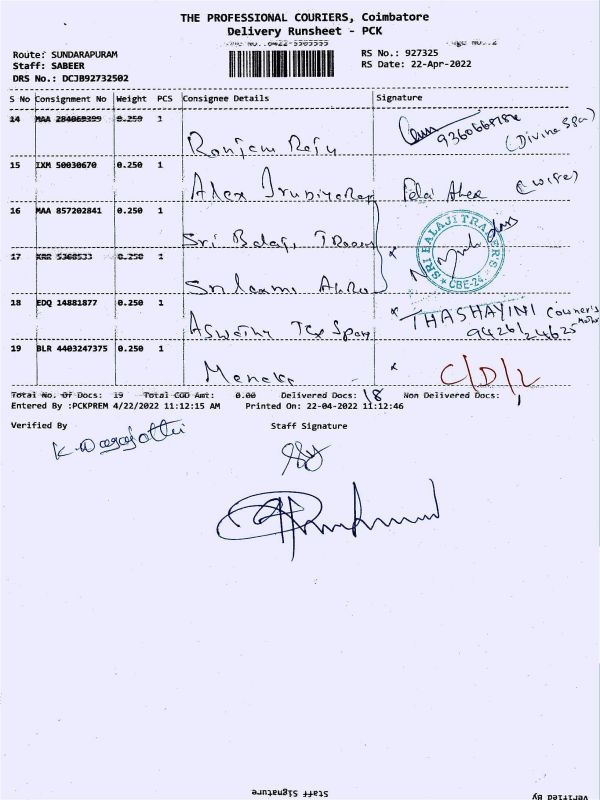 THE PROFESSIONAL COURIERS, Coimbatore
Delivery Runsheet - PCK
Route: SUNDARAPURAM
RS No.: 927325
Staff: SABEER
RS Date: 22-Apr-2022
DRS No.: DCJB92732502
S No Consignment No Weight PCS Consignee Details Signature
14 MAA 284069399 0.250 1
9360668182 (Divine spa)
Ranjem Raju
15 IXM 50030670 0.250 1
Alex (wife)
16 MAA 857202841 0.250 1
Sri Balaji Traders
SRI BALAJI TRADERS
CBE-24.
17 KRR 5368533 0.250 1
18 EDQ 14881877 0.250 1
THASHAYINI (owner's Mother
Aswathy Tex Span
19 BLR 4403247375 0.250 1
C/D/L
Meneka
Total No. Of Docs: 19 Total COD Amt: 0.00 Delivered Docs: 18 Non Delivered Docs: 1
Entered By :PCKPREM 4/22/2022 11:12:15 AM Printed On: 22-04-2022 11:12:46
Verified By Staff Signature
Staff Signature Verified By